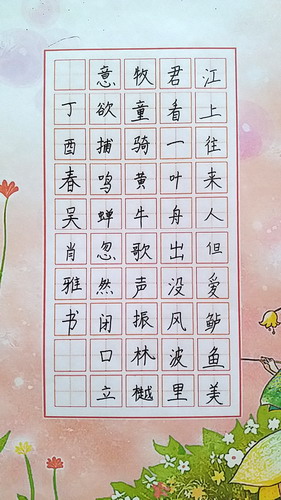 江上往来人但爱鲈鱼美
君看一叶舟出没风波里
牧童骑黄牛歌声振林樾
意欲捕鸣蝉忽然闭口立
丁酉春吴肖雅书